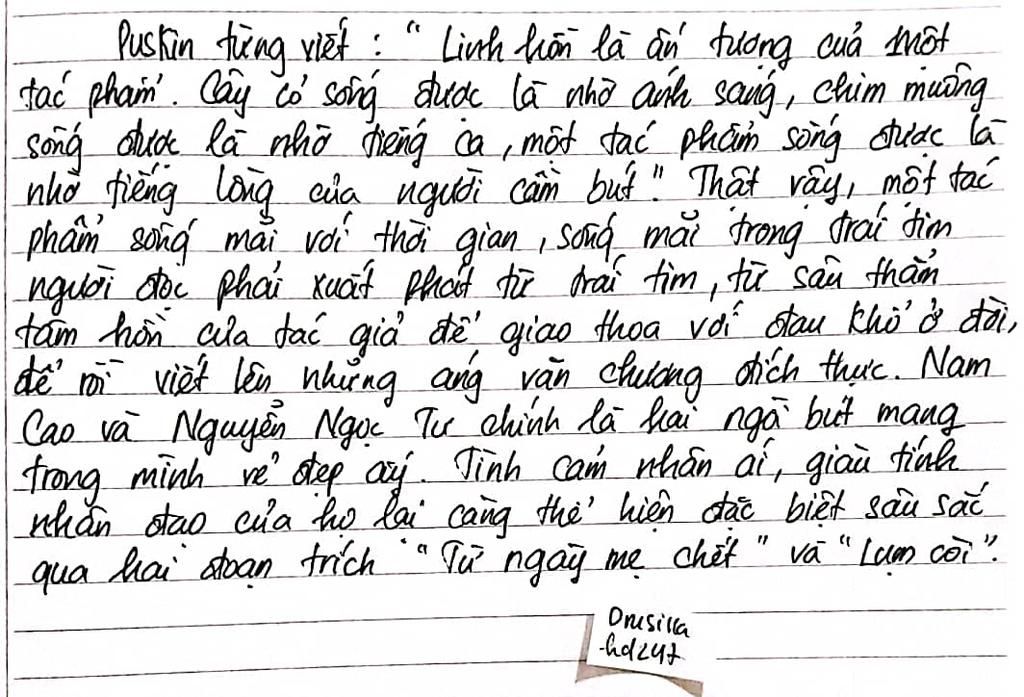 Puskin từng viết : " Linh hồn là ấn tượng của một
tác phẩm. Cây cỏ sống được là nhờ ánh sáng, chim muông
sống được là nhờ tiếng ca, một tác phẩm sống được là
nhờ tiếng lòng của người cầm bút". Thật vậy, một tác
phẩm sống mãi với thời gian, sống mãi trong trái tim
người đọc phải xuất phát từ trái tim, từ sâu thẳm
tâm hồn của tác giả để giao thoa với đau khổ ở đời,
để rồi viết lên những áng văn chương đích thực. Nam
Cao và Nguyễn Ngọc Tư chính là hai ngòi bút mang
trong mình vẻ đẹp ấy. Tình cảm nhân ái, giàu tính
nhân đạo của họ lại càng thể hiện đặc biệt sâu sắc
qua hai đoạn trích "Từ ngày mẹ chết" và "Lụm còi".
Drusilla
-hd247